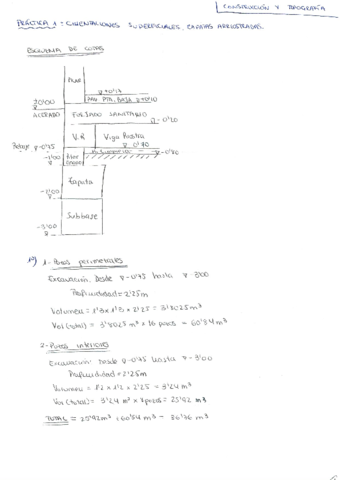 CONSTRUCCIÓN Y TOPOGRAFÍA
PRÁCTICA 1: CIMENTACIONES SUPERFICIALES, ZAPATAS ARRIOSTRADAS.
ESQUEMA DE COTAS
±0'00
ACERADO
FORJADO SANITARIO
-0'20
V.R
Viga Riostra
-0'75
-0'70
-0'80
-1'00
Zapata
-2'00
Subbase
-3'00
1º) 1- Pozos perimetrales
Excavación. Desde -0'75 hasta -3'00
Profundidad = 2'25m
Volumen = 1'3 x 1'3 x 2'25 = 3'8025 m³
Vol (total) = 3'8025 m³ x 16 pozos = 60'84 m³
2- Pozos interiores
Excavación: Desde -0'75 hasta -3'00
Profundidad = 2'25m
Volumen = 1'2 x 1'2 x 2'25 = 3'24 m³
Vol (total) = 3'24 m³ x 8 pozos = 25'92 m³
TOTAL = 25'92 m³ + 60'84 m³ = 86'76 m³